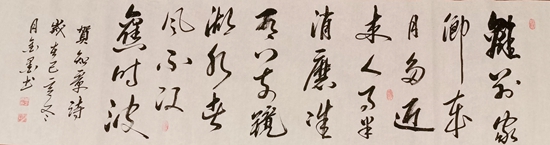 離別家
鄉歲
月多近
来人事半
消磨惟
有门前鏡
湖水春
风不改
舊时波
賀知章詩
歲在己亥冬
月
书